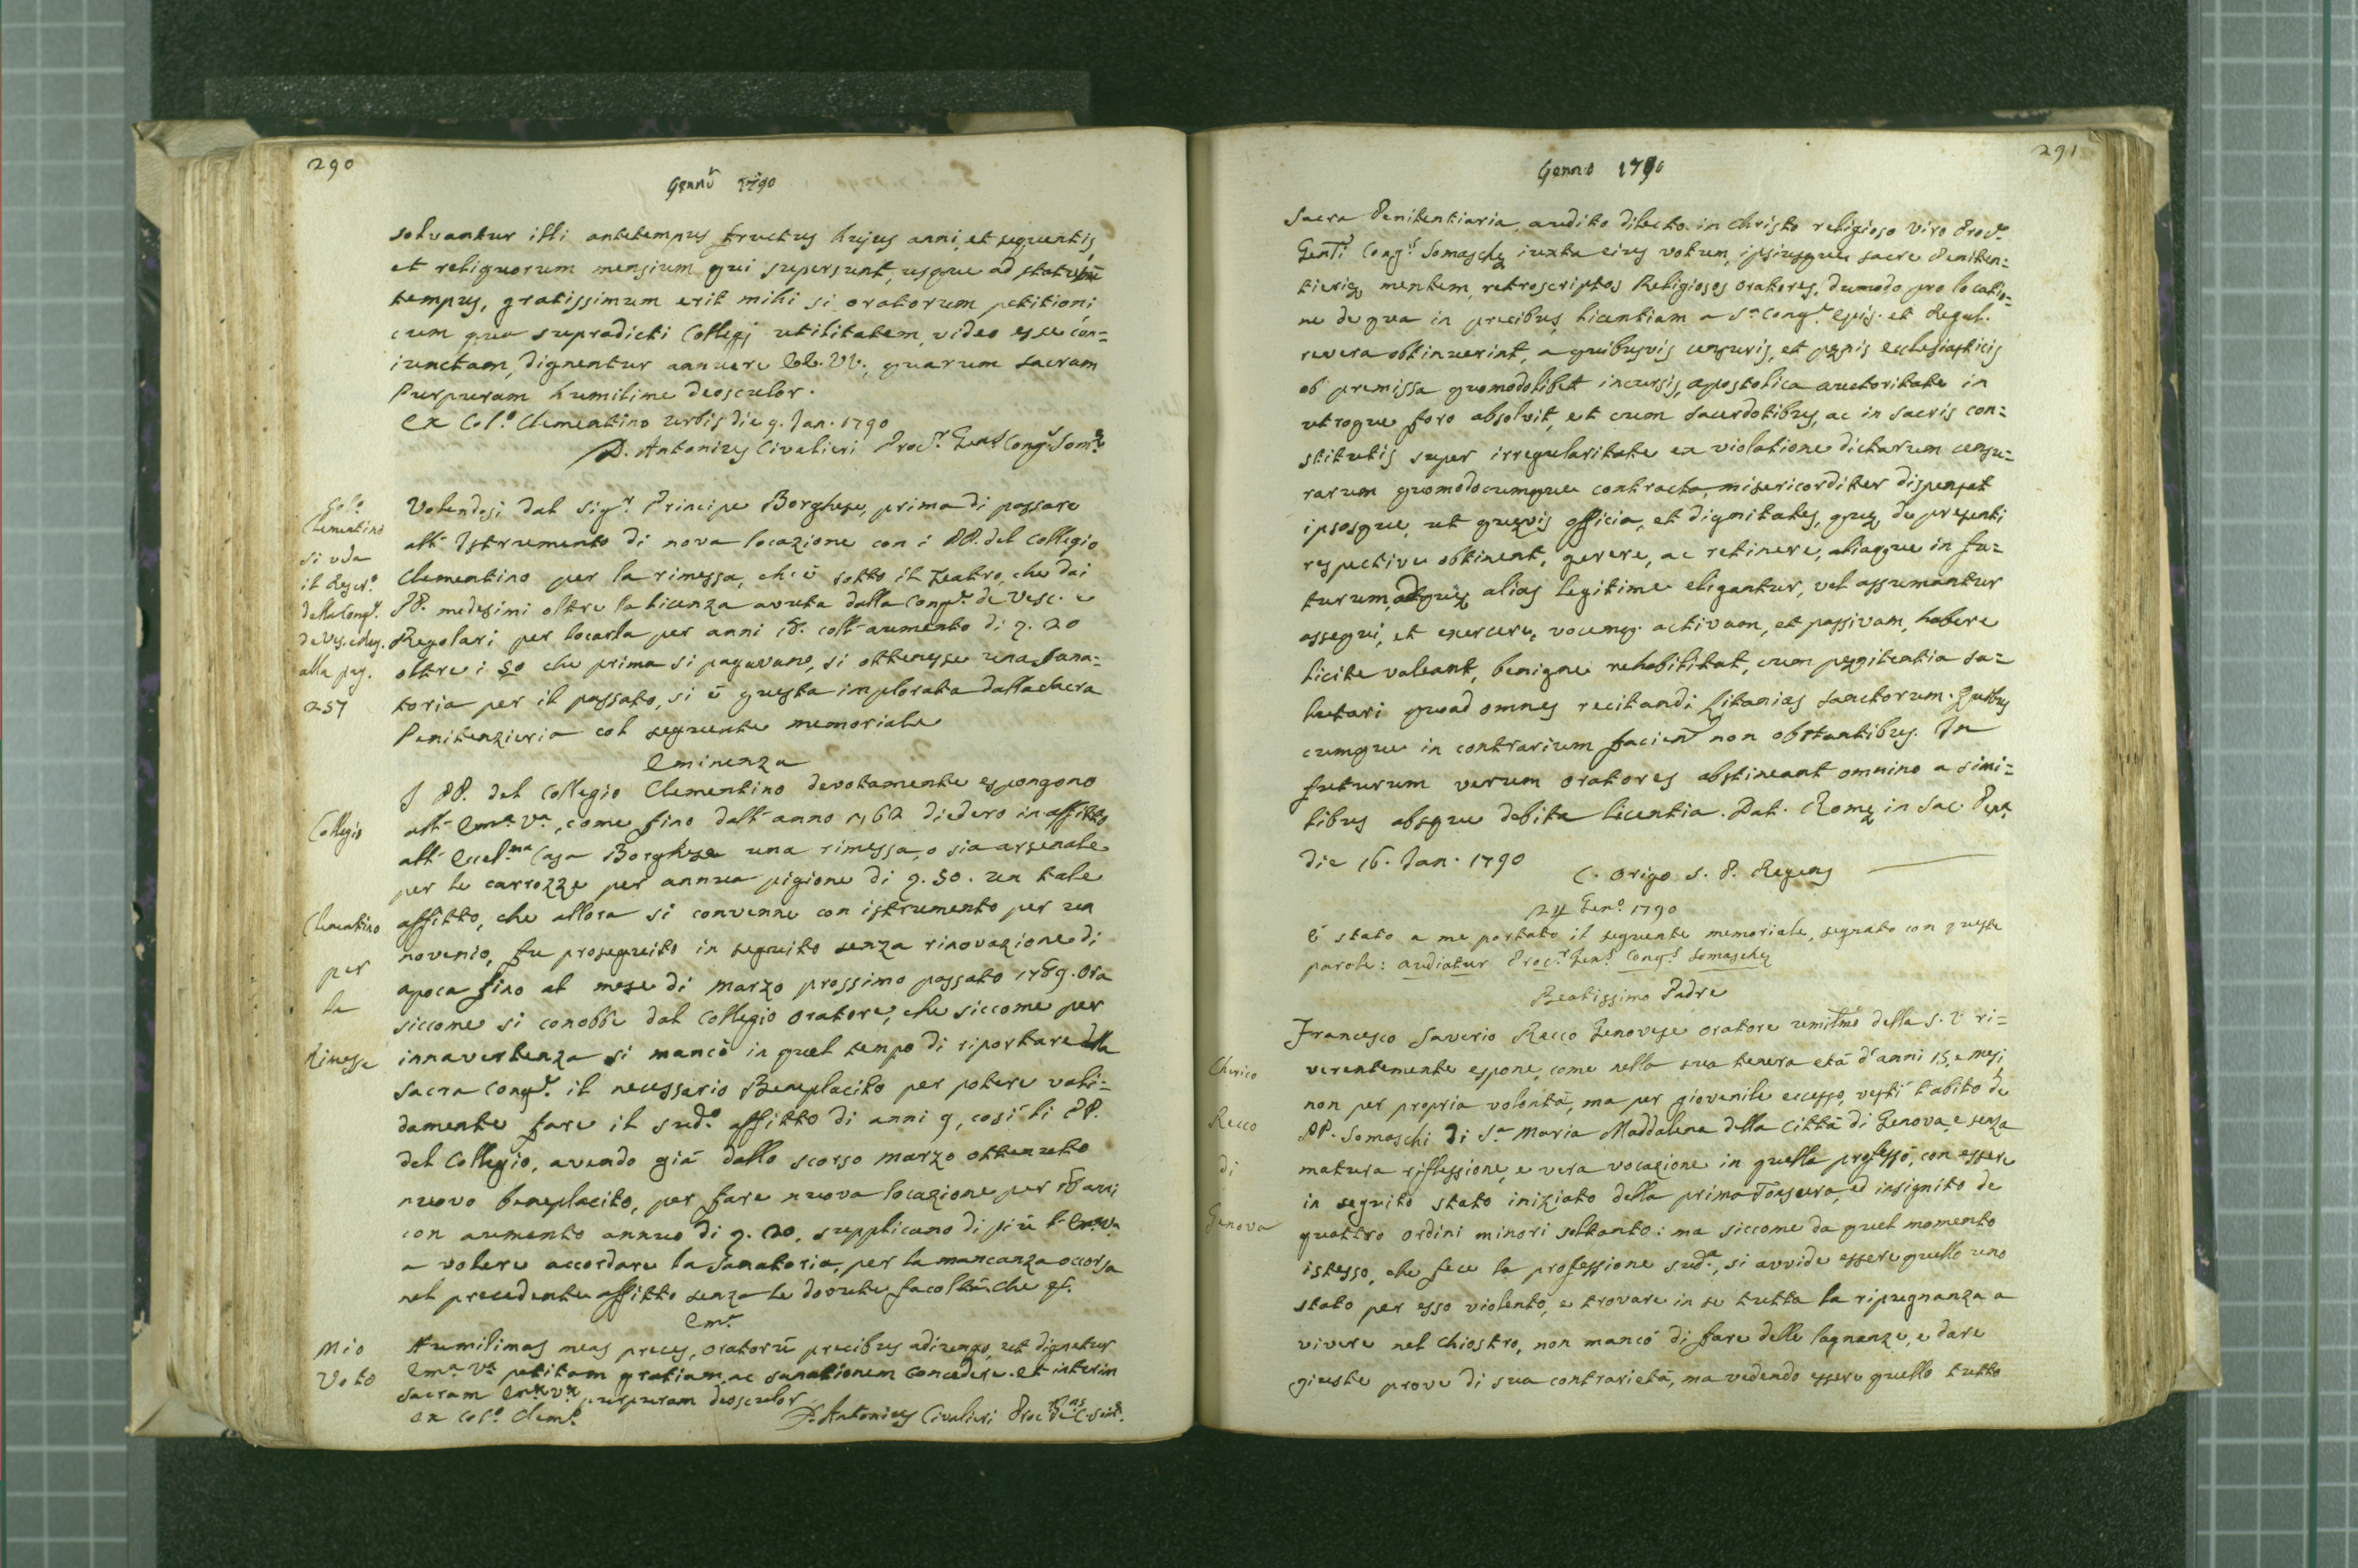 290
Gennᵒ 1790
solvantur illi antetempus fructus hujus anni, et sequentis,
et reliquorum mensium qui supersunt, usque ad statutū
tempus, gratissimum erit mihi si oratorum petitioni
cum qua supradicti Collegj utilitatem video esse con=
iunctam, dignentur annuere EE. VV., quarum sacram
Purpuram humilime deosculor.
Ex Col.º Clementino Urbis die 9. Jan. 1790
D. Antonius Civalieri Proc.r Gen.l Cong.s Som.e
Col.º
Clementino
si veda
il Rescr.º
della Cong.e
de Ves. e Reg.
alla pag.
257
Volendosi dal Sig.r Principe Borghese, prima di passare
all' Istrumento di nova locazione con i PP. del Collegio
Clementino per la rimessa, ch'è sotto il Teatro, che dai
PP. medesimi oltre la licenza avuta dalla Cong.e de Vesc. e
Regolari per locarla per anni 18. coll' aumento di 9. 20
oltre i 50 che prima si pagavano, si ottenesse una Sana=
toria per il passato, si è questa implorata dalla Sacra
Penitenzieria col seguente memoriale
Eminenza
Collegio
Clementino
per
la
Rimessa
I PP. del Collegio Clementino devotamente espongono
all' Em.a V.a, come fino dall' anno 1762 diedero in affitto
all' Eccel.ma Casa Borghese una rimessa, o sia arsenale
per le carrozze per annua pigione di 9. 50. un tale
affitto, che allora si convenne con istrumento per un
novenio, fu proseguito in seguito senza rinovazione di
apoca fino al mese di Marzo prossimo passato 1789. Ora
siccome si conobbe dal Collegio Oratore, che siccome per
innavertenza si mancò in quel tempo di riportare dalla
Sacra Cong.e il necessario Beneplacito per potere vali=
damente fare il sud.º affitto di anni 9, così li PP.
del Collegio, avendo già dallo scorso Marzo ottenuto
nuovo beneplacito, per fare nuova locazione per 18 anni
con aumento annuo di 9. 20, supplicano di più l' Em.a V.a
a volere accordare la Sanatoria, per la mancanza occorsa
nel precedente affitto senza le dovute facoltà che &.
Em.e
Mio
Voto
Humilimas meas preces, oratorū precibus adiungo, ut dignetur
Em.a V.a petitam gratiam, ac sanationem concedere. Et interim
sacram Em.æ V.æ purpuram deosculor
Ex Col.º Clem.º
D. Antonius Civalieri Proc.
291
Genn.o 1790
Sacra Penitentiaria, audito dilecto in Christo religioso viro Proc.re
Gen.li Cong.s Somaschę iuxta eius votum, ipsiusque sacre Peniten=
tierię mentem, retroscriptos Religiosos oratores, dumodo pro locatio=
ne de qua in precibus licentiam a S.a Cong.e Epis. et Regul.
revera obtinuerint, a quibusvis censuris, et pęnis ecclesiasticis
ob premissa quomodolibet incursis, apostolica auctoritate in
utroque foro absolvit, et cum sacerdotibus, ac in sacris con=
stitutis super irregularitate ex violatione dictarum censu=
rarum quomodocumque contracta, misericorditer dispensat
ipsosque, ut quęvis officia, et dignitates, quę de presenti
respective obtinent, gerere, ac retinere, aliaque in fu=
turum, ad quę alias legitime eligantur, vel assumantur
assequi, et exercere, vocemq. activam, et passivam, habere
licite valeant, benigne rehabilitat, cum pęnitentia sa=
lutari quoad omnes recitandi Litanias Sanctorum. Quibus
cumque in contrarium facien. non obstantibus. In
futurum verum oratores abstineant omnino a simi=
libus absque debita licentia. Dat. Romę in Sac. Pęn.
die 16. Jan. 1790
C. Origo S. P. Regens
24 Gen.º 1790
È stato a me portato il seguente memoriale, segnato con queste
parole: audiatur Proc.r Gen.s Cong.s Somaschę
Beatissimo Padre
Cherico
Recco
di
Genova
Francesco Saverio Recco Genovese oratore umilmo della S. V. ri=
verentemente espone, come nella sua tenera età d'anni 15, e mesi
non per propria volontà, ma per giovenile eccesso, vestì l'abito de
PP. Somaschi di S.a Maria Maddalena della Città di Genova, e senza
matura riflessione, e vera vocazione in quella professò, con essere
in seguito stato iniziato della prima Tonsura, ed insignito de
quattro ordini minori soltanto: ma siccome da quel momento
istesso, che fece la professione sud.a, si avvide essere quello uno
stato per esso violento, e trovare in se tutta la ripugnanza a
vivere nel Chiostro, non mancò di fare delle lagnanze, e dare
giuste prove di sua contrarietà, ma vedendo essere quello tutto